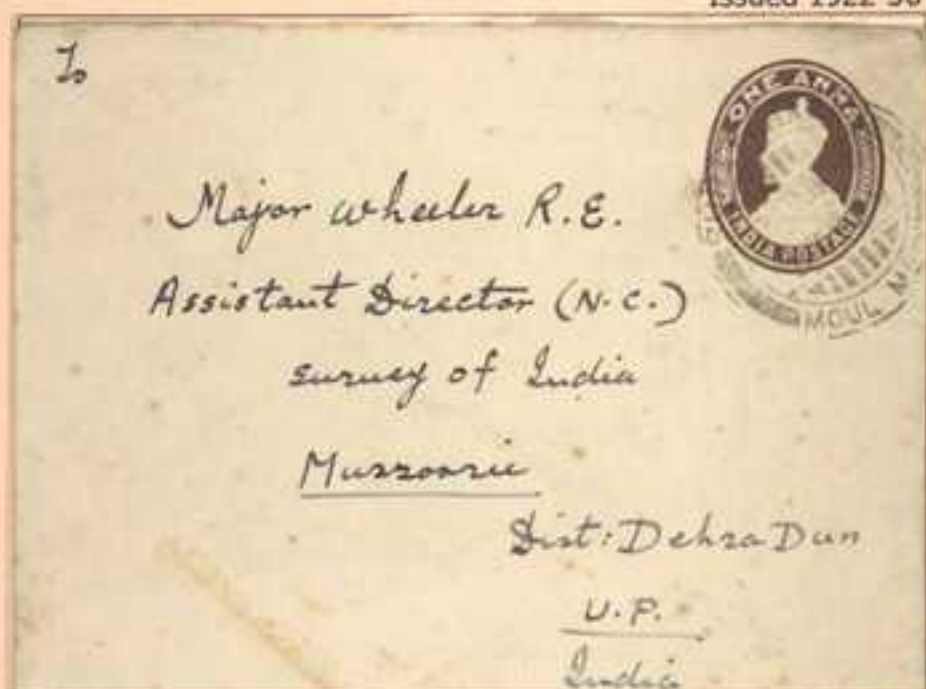 Issued 1922-36
To
ONE ANNA
INDIA POSTAGE
MOUL M
Major Wheeler R.E.
Assistant Director (N.C.)
Survey of India
Mussoorie
Dist: Dehra Dun
U.P.
India